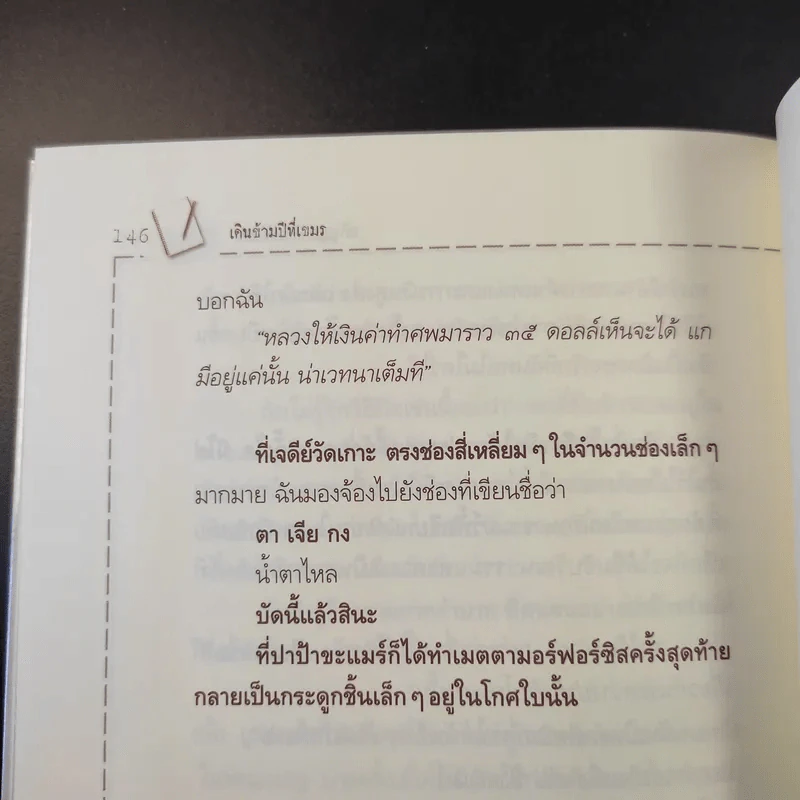 146
เดินข้ามปีที่เขมร
บอกฉัน
“หลวงให้เงินค่าทำศพมาราว ๓๕ ดอลล์เห็นจะได้ แก
มีอยู่แค่นั้น น่าเวทนาเต็มที”
ที่เจดีย์วัดเกาะ ตรงช่องสี่เหลี่ยม ๆ ในจำนวนช่องเล็ก ๆ
มากมาย ฉันมองจ้องไปยังช่องที่เขียนชื่อว่า
ตา เจีย กง
น้ำตาไหล
บัดนี้แล้วสินะ
ที่ปาป้าขะแมร์ก็ได้ทำเมตตามอร์ฟอร์ซิสครั้งสุดท้าย
กลายเป็นกระดูกชิ้นเล็ก ๆ อยู่ในโกศใบนั้น